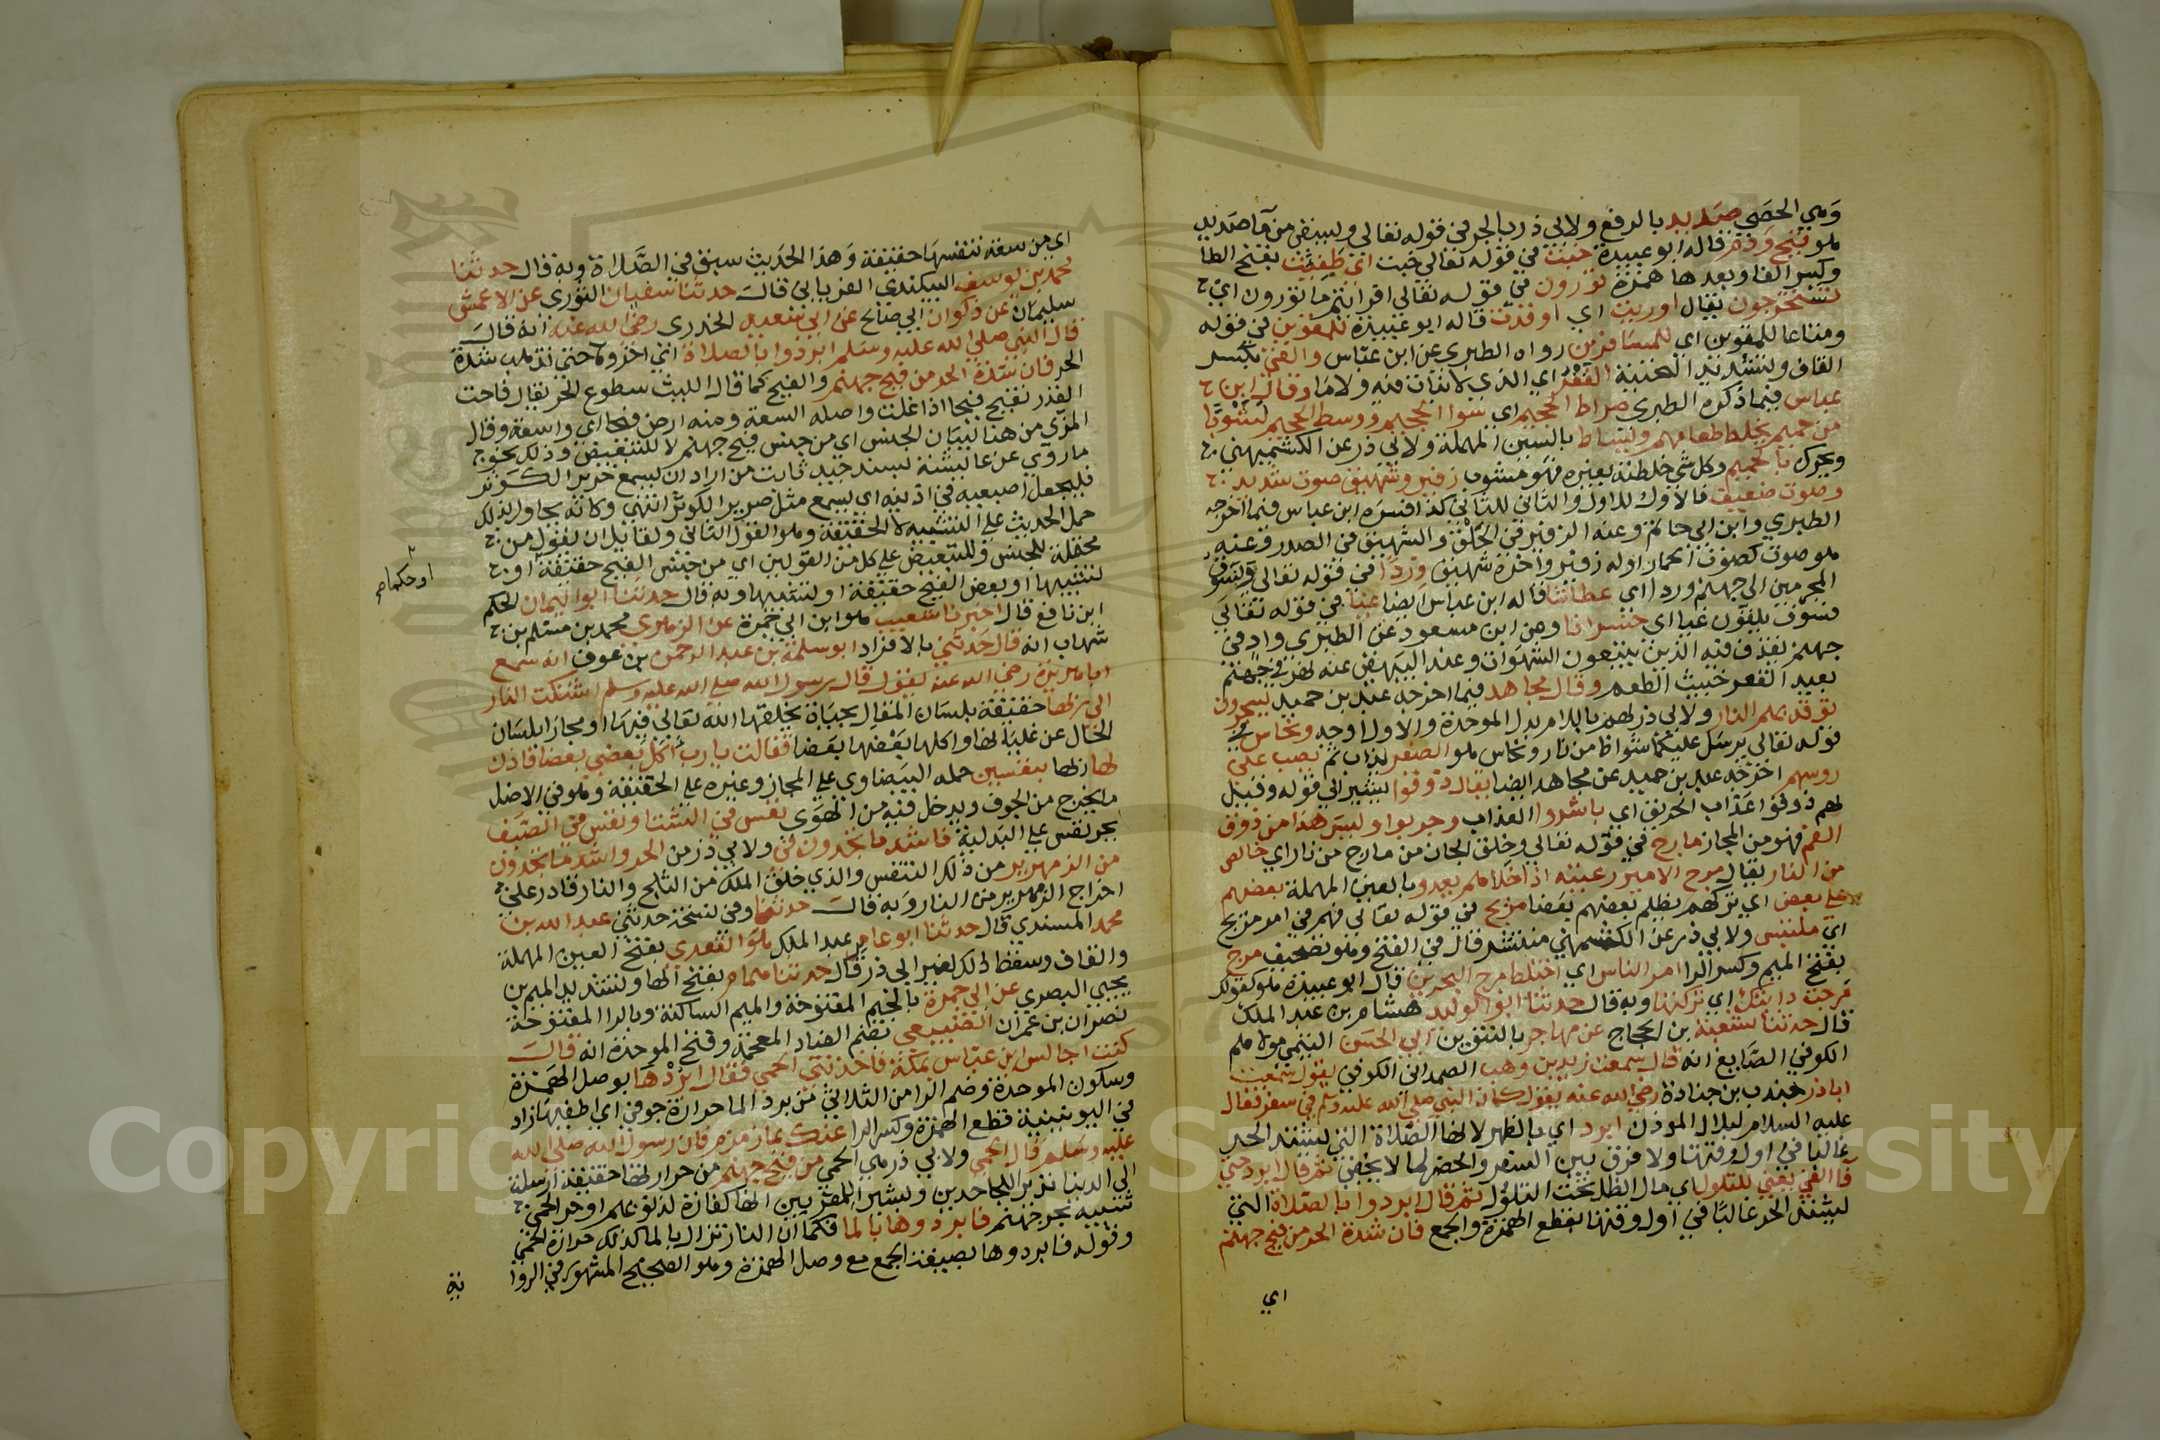 وهي الحصى صديد بالرفع ولابي ذر بالجر في قوله تعالى ويسقى من مآ صديد
هو قيح ودم قاله ابو عبيدة خبت في قوله تعالى خبت اي طفئت بفتح الطا
وكسر الفا وبعدها همزة تورون في قوله تعالى افرايتم ما تورون اي
تستخرجون يقال اوريت اي اوقدت قاله ابو عبيدة للمقوين في قوله
ومتاعا للمقوين اي للمسافرين رواه الطبري عن ابن عباس والقي بكسر
القاف وتشديد التحتية القفر اي الذي لا نبات فيه ولا ما وقال ابن
عباس فيما ذكره الطبري صراط الجحيم اي سوا الجحيم ووسط الجحيم لشوبا
من حميم يخلط طعامهم ويساط بالسين المهملة ولابي ذر عن الكشميهني
ويحرك بالحميم وكل شي خلطته بغيره فهو مشوب زفير وشهيق صوت شديد
وصوت ضعيف فالاول للاول والثاني للثاني كذا فسره ابن عباس فيما اخرجه
الطبري وابن ابي حاتم وعنه الزفير في الحلق والشهيق في الصدر وعنه
هو صوت كصوت الحمار اوله زفير واخره شهيق وردا في قوله تعالى ونسوق
المجرمين الى جهنم وردا اي عطاشا قاله ابن عباس ايضا غيا في قوله تعالى
فسوف يلقون غيا اي خسرانا وعن ابن مسعود عن الطبري واد في
جهنم يقذف فيه الذين يتبعون الشهوات وعند البيهقي عنه نهر في جهنم
بعيد القعر خبيث الطعم وقال مجاهد فيما اخرجه عبد بن حميد يسجرون
توقد بهم النار ولابي ذر لهم باللام بدل الموحدة والاول اوجه ونحاس في
قوله تعالى يرسل عليكما شواظ من نار ونحاس هو الصفر يذاب ثم يصب على
روسهم اخرجه عبد بن حميد عن مجاهد ايضا يقال ذوقوا يشير الي قوله وقيل
لهم ذوقوا عذاب الحريق اي باشروا العذاب وجربوا وليس هذا من ذوق
الفم فهو من المجاز مارج في قوله تعالى وخلق الجان من مارج من نار اي خالص
من النار يقال مرج الامير رعيته اذا خلاهم يعدو بالعين المهملة بعضهم
على بعض اي تركهم يظلم بعضهم بعضا مريج في قوله تعالى فهم في امر مريج
اي ملتبس ولابي ذر عن الكشميهني منتشر قال في الفتح وهو تصحيف مرج
بفتح الميم وكسر الرا امر الناس اي اختلط مرج البحرين قال ابو عبيدة هو كقولك
مرجت دابتك اي تركتها وبه قال حدثنا ابو الوليد هشام بن عبد الملك
قال حدثنا شعبة بن الحجاج عن مهاجر بالتنوين ابي الحسن التيمي مولاهم
الكوفي الصايغ انه قال سمعت زيد بن وهب الهمداني الكوفي يقول سمعت
ابا ذر جندب بن جنادة رضي الله عنه يقول كان النبي صلى الله عليه وسلم في سفر فقال
عليه السلام لبلال الموذن ابرد اي بالظهر لانها الصلاة التي يشتد الحر
غالبا في اول وقتها ولا فرق بين السفر والحضر لما لا يخفى ثم قال ابرد حتى
فا الفي يعني للتلول اي مال الظل تحت التلول ثم قال ابردوا بالصلاة التي
يشتد الحر غالبا في اول وقتها بقطع الهمزة والجمع فان شدة الحر من فيح جهنم
اي
اي من سعة تنفسها حقيقة وهذا الحديث سبق في الصلاة وبه قال حدثنا
محمد بن يوسف البيكندي الفريابي قال حدثنا سفيان الثوري عن الاعمش
سليمان عن ذكوان ابي صالح عن ابي سعيد الخدري رضي الله عنه انه قال
قال النبي صلى الله عليه وسلم ابردوا بالصلاة اي اخروها حتى تذهب شدة
الحر فان شدة الحر من فيح جهنم والفيح كما قال الليث سطوع الحر يقال فاحت
القدر تفيح فيحا اذا غلت واصله السعة ومنه ارض فيحا اي واسعة وقال
المزي من هنا لبيان الجنس اي من جنس فيح جهنم لا للتبعيض وذلك نحو
ما روي عن عايشة بسند جيد ثابت من اراد ان يسمع خرير الكوثر
فليجعل اصبعيه في اذنيه اي يسمع مثل خرير الكوثر انتهى وكانه يحاول بذلك
حمل الحديث على التشبيه لا الحقيقة وهو القول الثاني ولقايل ان يقول من
محتملة للجنس وللتبعيض على كل من القولين اي من جنس الفيح حقيقة او
تشبيها او بعض الفيح حقيقة او تشبيها وبه قال حدثنا ابو اليمان الحكم
ابن نافع قال اخبرنا شعيب هو ابن ابي حمزة عن الزهري محمد بن مسلم بن
شهاب انه قال حدثني بالافراد ابو سلمة بن عبد الرحمن بن عوف انه سمع
ابا هريرة رضي الله عنه يقول قال رسول الله صلى الله عليه وسلم اشتكت النار
الى ربها حقيقة بلسان المقال بحياة يخلقها الله تعالى فيها او مجازا بلسان
الحال عن غليانها واكلها بعضها بعضا فقالت يا رب اكل بعضي بعضا فاذن
لها ربها بنفسين حمله البيضاوي على المجاز وغيره على الحقيقة وهو في الاصل
ما يخرج من الجوف ويدخل فيه من الهوى نفس في الشتا ونفس في الصيف
بجر نفس على البدلية فاشد ما تجدون في ولابي ذر من الحر واشد ما تجدون
من الزمهرير من ذلك التنفس والذي خلق الملك من الثلج والنار قادر على
اخراج الزمهرير من النار وبه قال حدثنا وفي نسخة حدثني عبد الله بن
محمد المسندي قال حدثنا ابو عامر عبد الملك هو العقدي بفتح العين المهملة
والقاف وسقظ ذلك لغير ابي ذر قال حدثنا همام بفتح الها وتشديد الميم بن
يحيى البصري عن ابي جمرة بالجيم المفتوحة والميم الساكنة وبالرا المفتوحة
نصر ان بن عمران الضبيعي بضم الضاد المعجمة وفتح الموحدة انه قال
كنت اجالس ابن عباس بمكة فاخذتني الحمى فقال ابردها بوصل الهمزة
وسكون الموحدة وضم الرا من الثلاثي من برد الما حرارة جوفي اي اطفيها زاد
في اليونينية قطع الهمزة وكسر الرا عنك بما زمزم فان رسول الله صلى الله
عليه وسلم قال الحمى ولابي ذر هي الحمى من فيح جهنم من حرارتها حقيقة ارسلت
الى الدنيا نذيرا للجاحدين وبشيرا للمقربين انها كفارة لذنوبهم او حر الحمى
شبيه بحر جهنم فابردوها بالما فكما ان النار تزال بالما كذلك حرارة الحمى
وقوله فابردوها بصيغة الجمع مع وصل الهمزة وهو الصحيح المشهور في الروا
ية
Copyright © King Saud University